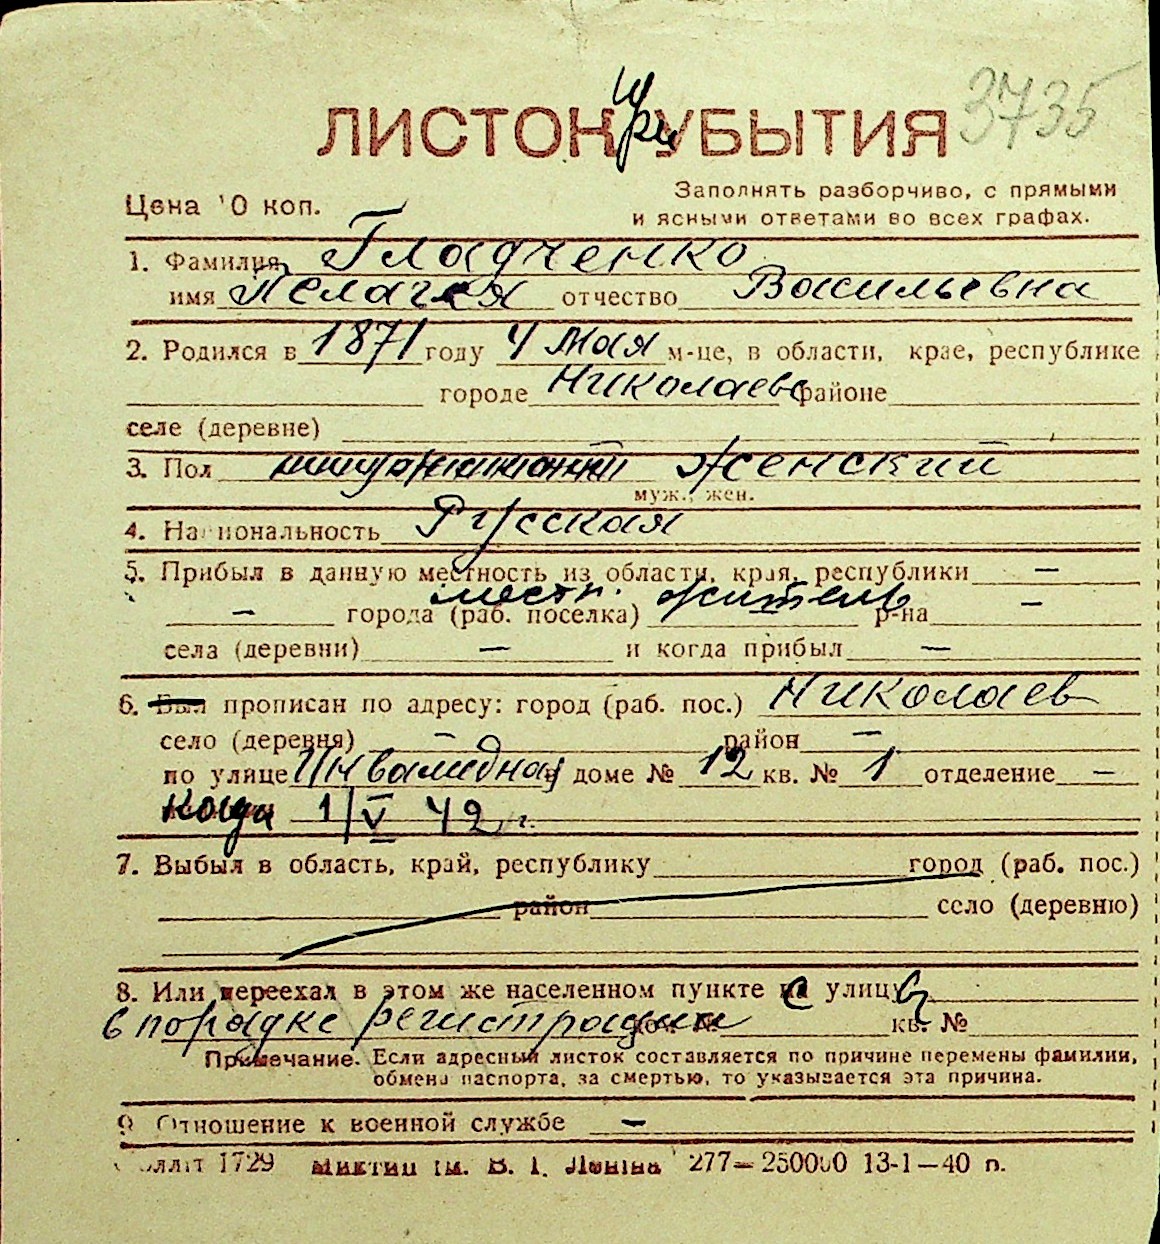 3735
ЛИСТОК при УБЫТИЯ
Цена 10 коп.
Заполнять разборчиво, с прямыми
и ясными ответами во всех графах.
1. Фамилия Гладченко
имя Пелагея отчество Васильевна
2. Родился в 1871 году 4 мая м-це, в области, крае, республике
городе Николаеве районе
селе (деревне)
3. Пол Женский
муж., жен.
4. Национальность Русская
5. Прибыл в данную местность из области, края, республики —
— местн. житель города (раб. поселка) р-на —
села (деревни) — и когда прибыл —
6. Был прописан по адресу: город (раб. пос.) Николаев
село (деревня) — район —
по улице Инвалидная в доме № 12 кв. № 1 отделение —
когда 1/V 42 г.
7. Выбыл в область, край, республику город (раб. пос.)
район село (деревню)
8. Или переехал в этом же населенном пункте с улицы
в порядке регистрации кв. №
Примечание. Если адресный листок составляется по причине перемены фамилии,
обмена паспорта, за смертью, то указывается эта причина.
9 Отношение к военной службе —
1729 им. В. І. Леніна 277—250000 13-1—40 п.